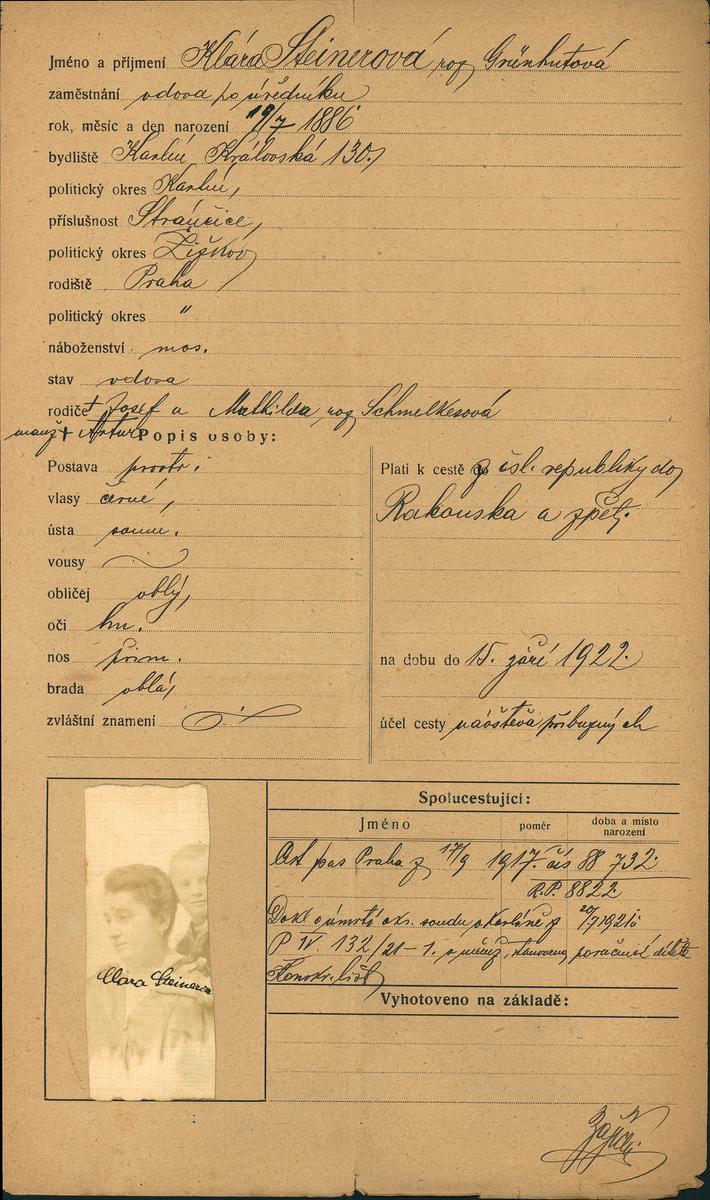 Jméno a příjmení Klára Steinerová roz. Grünhutová
zaměstnání vdova po úředníku
rok, měsíc a den narození 19/7 1886
bydliště Karlín, Královská 130.
politický okres Karlín,
příslušnost Strančice,
politický okres Žižkov
rodiště Praha
politický okres "
náboženství mos.
stav vdova
rodiče † Josef a Mathilda roz. Schmelkesová
manž † Artur
Popis osoby:
Postava prostř.
vlasy černé,
ústa soum.
vousy
obličej oblý,
oči hn.
nos přim.
brada oblá,
zvláštní znamení
Platí k cestě z čsl. republiky do
Rakouska a zpět.
na dobu do 15. září 1922.
účel cesty návštěva příbuzných
Spolucestující:
Jméno
poměr
doba a místo narození
pas Praha z 17/9 1917. čís 88 732.
R.P. 8822
Dokl. o úmrtí okr. soudu v Karlíně z 20/7 1921
P IV 132/21-1. poručnicí dítěte
Konskr. list
Vyhotoveno na základě:
Clara Steinerova